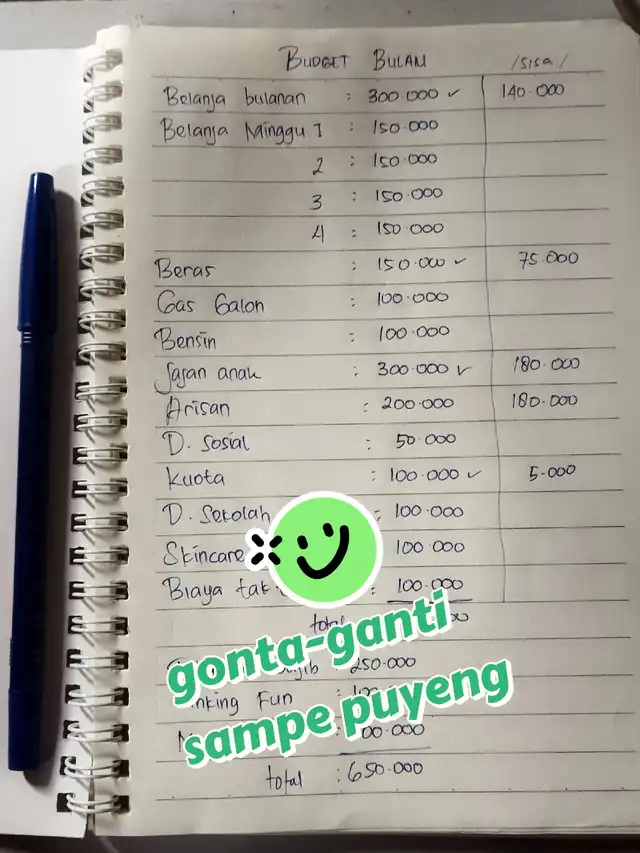 BUDGET BULAN /sisa/
Belanja bulanan : 300.000 ✓ 140.000
Belanja Minggu 1 : 150.000
2 : 150.000
3 : 150.000
4 : 150.000
Beras : 150.000 ✓ 75.000
Gas Galon : 100.000
Bensin : 100.000
Jajan anak : 300.000 ✓ 180.000
Arisan : 200.000 180.000
D. Sosial : 50.000
Kuota : 100.000 ✓ 5.000
D. Sekolah : 100.000
Skincare 100.000
Biaya tak : 100.000
total
gonta-ganti
: 250.000
Fun :
sampe puyeng
total : 650.000